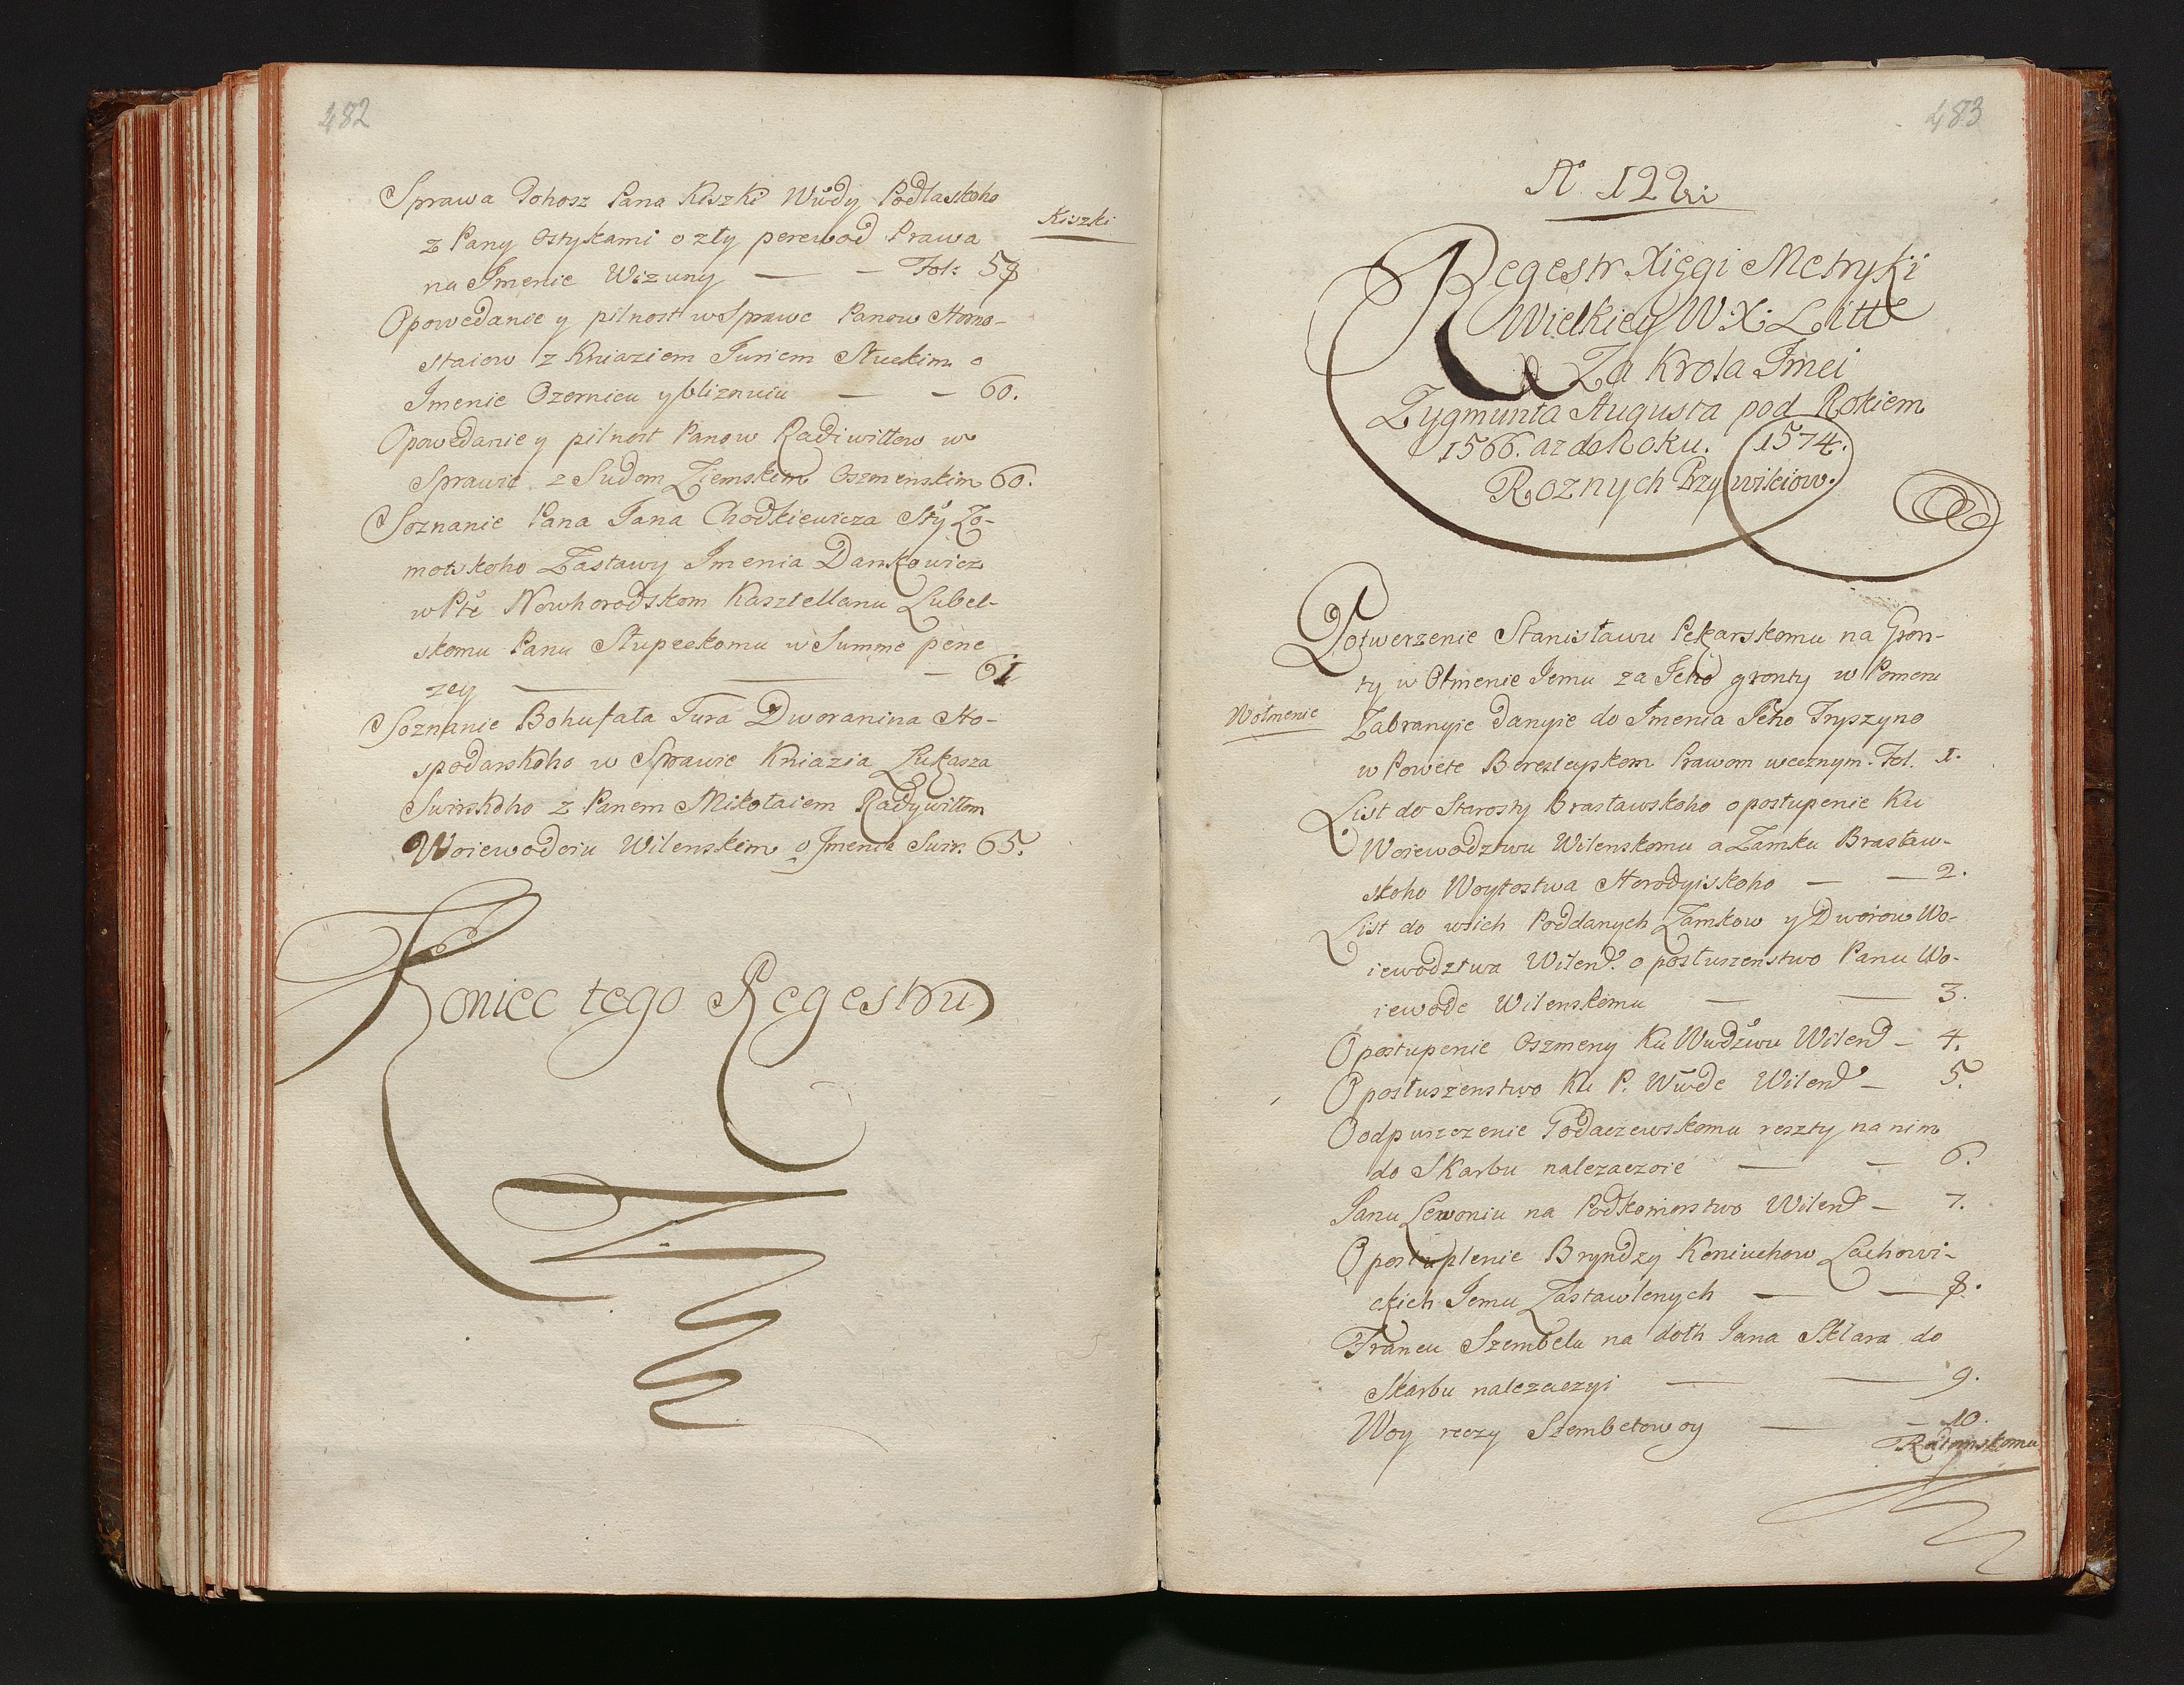 482
Sprawa Tohosz Pana Kiszki Wwdy Podlaskoho
Kiszki
z Pany Ostykami o zły perewod Prawa
na Jmenie Wizuny — — Fol: 58
Opowedanie y pilnost w Sprawe Panow Horno-
staiow z Kniaziem Juriem Słuckim o
Jmenie Ozernicu y — — 60.
Opowedanie y pilnost Panow Radiwiłłow w
Sprawie z Sudom Ziemskim Oszmenskim 60.
Soznanie Pana Jana Chodkiewicza Sty Żo-
motskoho Zastawy Jmenia Dankowicz
w Pte Nowhorodskom Kasztellanu Lubel-
skomu Panu Słupeckomu w Summe pene
zey — — — 61
Soznanie Bohufała Tura Dworanina Ho-
spodarskoho w Sprawie Kniazia Łukasza
Swirskoho z Panem Mikołaiem Radywiłłom
Woiewodoiu Wilenskim o Jmenie Swir. 65.
Koniec tego Regestru
483
N° 122
Regestr Xięgi Metryki
Wielkiey W. X. Litt
Za Krola Jmci
Zygmunta Augusta pod Rokiem
1566. az do Roku. 1574.
Roznych Przywileiow.
Potwerzenie Stanisławu Pekarskomu na Gron-
ty w Ołmenie Jemu za Jeho gronty w Pomeru
Wołmenie
Zabranyie danyie do Jmenia Jeho Tryszyno
w Powete Beresteyskom Prawom wecznym. Fol. 1.
List do Starosty Brasławskoho o postupenie Ku
Woiewodztwu Wilenskomu a Zamku Brasław-
skoho Woytostwa Horodyiskoho — — 2.
List do wsich Poddanych Zamkow y Dworow Wo-
iewodztwa Wilend. o posłuszenstwo Panu Wo-
iewode Wilenskomu — — 3.
O postupenie Oszmeny Ku Wwdzwu Wilend — 4.
O posłuszenstwo Ku P. Wwde Wilend — 5.
O odpuszczenie Podaczewskomu reszty na nim
do Skarbu nalezaczoie — — 6.
Panu Lewoniu na Podkomorstwo Wilend — 7.
O postuplenie Bryndzy Koniuchow Lachowi-
ckich Jemu Zastawlenych — — 8.
Francu Szembelu na dolh Jana Sklara do
Skarbu nalezaczyi — — 9.
Woy reczy Szembelowoy — — 10.
Radomskomu